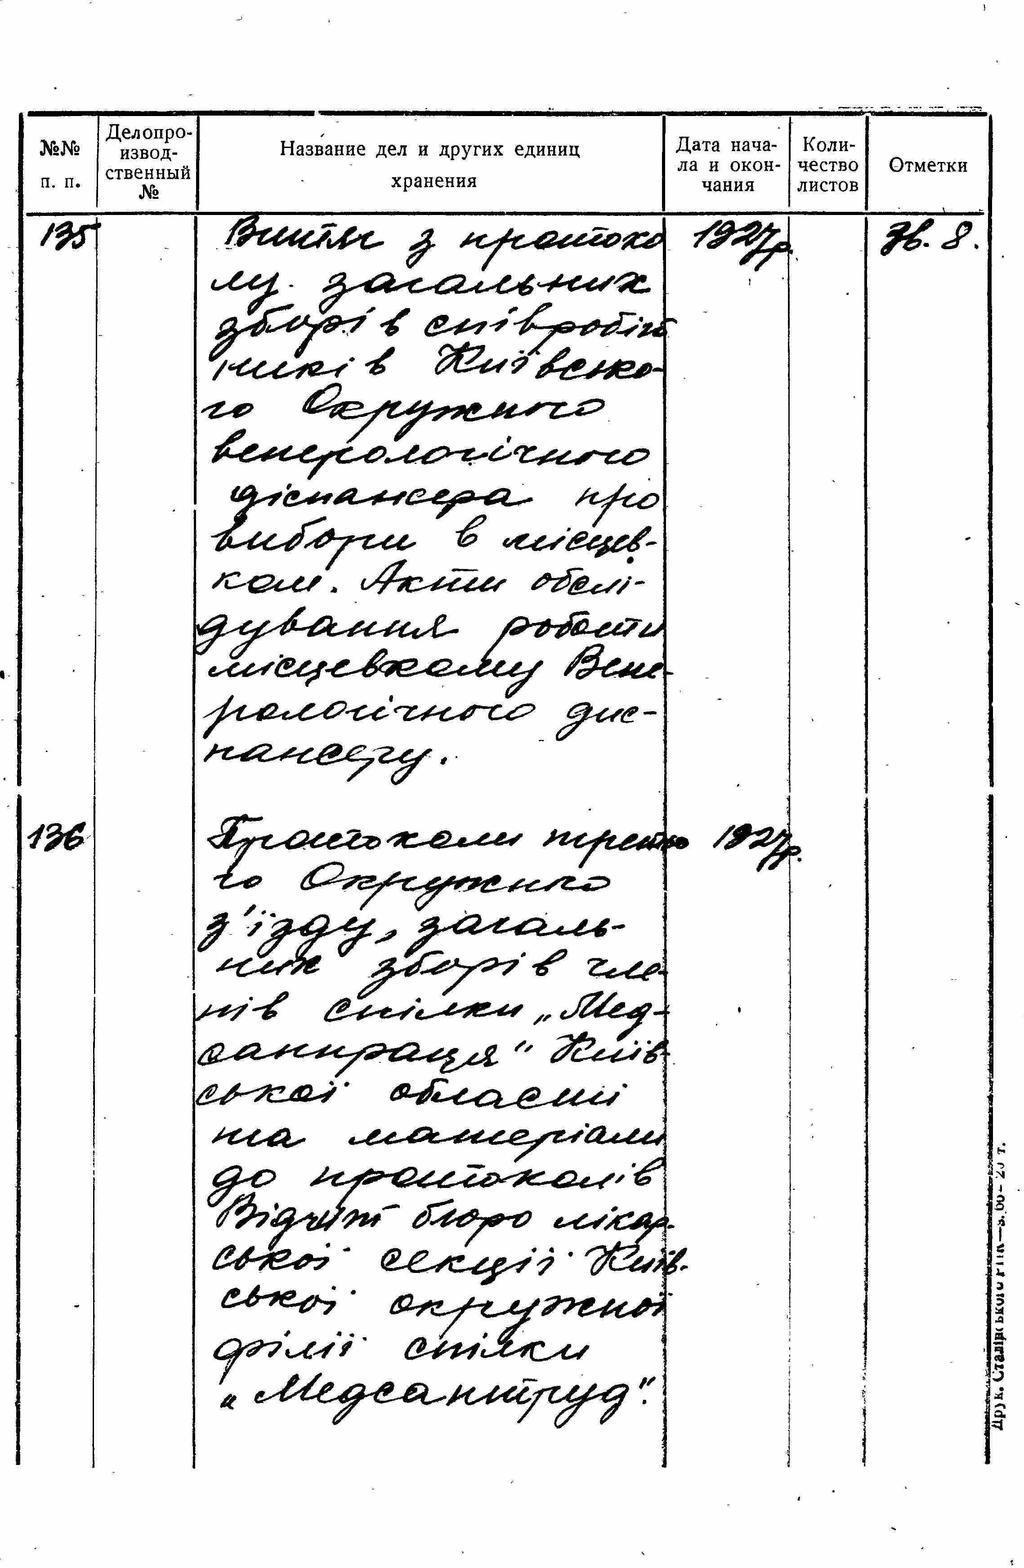 №№ п. п.
Делопро-
извод-
ственный
№
Название дел и других единиц
хранения
Дата нача-
ла и окон-
чания
Коли-
чество
листов
Отметки
135 Витяг з протоко 1927р. Зв. 8.
лу загальних
зборів співробіт
ників Київсько-
го Окружного
венерологічного
діспансера про
вибори в місцев-
ком. Акти обслі-
дування роботи
місцевкому Вене-
рологічного дис-
пансеру.
136 Протоколи третьо 1927р.
го Окружного
з'їзду, загаль-
них зборів чле-
нів спілки „Мед-
санпраця" Київ-
ської області
та матеріали
до протоколів
Відчит бюро лікар-
ської секції Київ-
ської окружної
філії спілки
„Медсантруд".
Друк. Сталінського